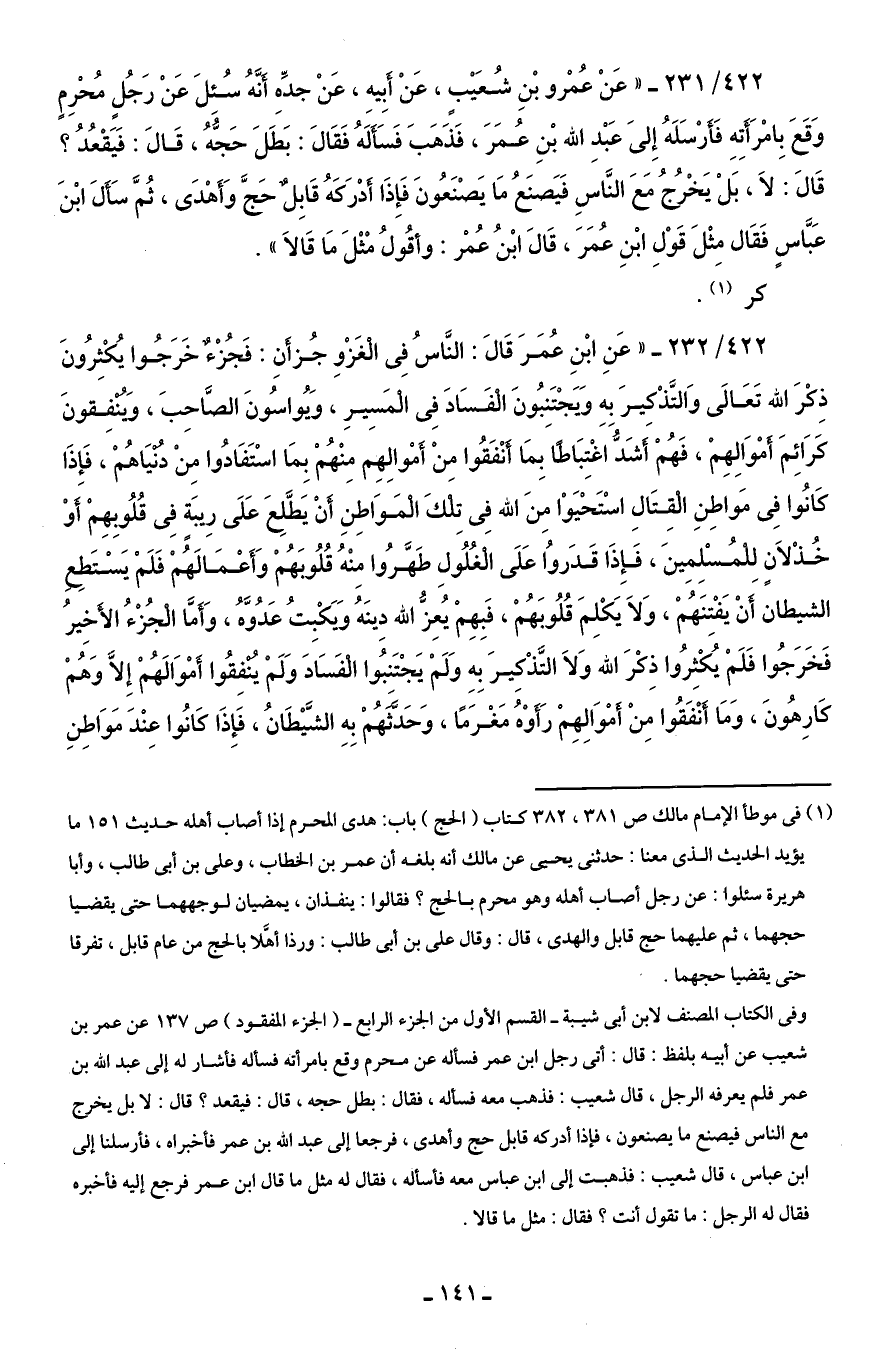 ٢٣١/٤٢٢ ـ « عَنْ عُمْرو بْنِ شُعَيْبٍ ، عَنْ أَبِيه ، عَنْ جدِّه أَنَّهُ سُئِلَ عَنْ رَجُلٍ مُحْرِمٍ
وَقَعَ بِامْرَأَتِه فَأَرْسَلَهُ إِلىَ عَبْدِ الله بْنِ عُمَرَ ، فَذَهَبَ فَسَأَلَهُ فَقَالَ : بَطَلَ حَجُّهُ ، قَالَ : فَيَقْعُدُ ؟
قَالَ : لاَ ، بَلْ يَخْرُجُ مَعَ النَّاسِ فَيَصنَعُ مَا يَصْنَعُونَ فَإِذَا أَدْرَكَهُ قَابِلٌ حَجَّ وَأَهْدَى ، ثُمَّ سَأَلَ ابْنَ
عَبَّاسٍ فَقَال مِثْلَ قَوْلِ ابْنِ عُمَرَ ، قَالَ ابْنُ عُمْر : وأقُولُ مْثْلَ مَا قَالاَ » .
كر (١) .
٢٣٢/٤٢٢ ـ « عَنِ ابْنِ عُمَرَ قَالَ : النَّاسُ فِى الْغَزْوِ جُزأَن : فَجُزْءٌ خَرَجُوا يُكْثِرُونَ
ذِكْرَ الله تَعَالَى وَالتَّذْكِيرَ بِه وَيَجْتَنِبُونَ الْفَسَادَ فِى الْمَسِيرِ ، ويُواسُونَ الصَّاحِبَ ، وَيُنْفِقونَ
كَرَائِمَ أَمْوَالِهِمْ ، فَهُمْ أَشَدُّ اغْتِبَاطًا بِمَا أَنْفَقُوا مِنْ أَمْوالِهِم مِنْهُمْ بِمَا اسْتَفَادُوا مِنْ دُنْيَاهُمْ ، فَإِذَا
كَانُوا فِى مَواطِنِ الْقِتَالِ اسْتَحْيَوْا مِنَ الله فِى تِلْكَ الْمَوَاطِنِ أَنْ يَطَّلِعَ عَلَى رِيبَةٍ فِى قُلُوبِهِمْ أَوْ
خُذْلاَنٍ لِلْمُسْلِمِينَ ، فَإِذَا قَدَروُا عَلَى الْغُلُولِ طَهَّرُوا مِنْهُ قُلُوبَهُمْ وَأَعْمَالَهُمْ فَلَمْ يَسْتَطِعِ
الشيطان أَنْ يَفْتِنَهُمْ ، وَلاَ يَكْلِمَ قُلُوبَهُمْ ، فَبِهِمْ يُعِزُّ الله دِينَهُ وَيَكْبِتُ عَدُوَّهُ ، وَأَمَّا الْجُزْءُ الأَخيرُ
فَخَرَجُوا فَلَمْ يُكْثِرُوا ذِكْرَ الله وَلاَ التَّذْكِيرَ بِه وَلَمْ يَجْتَنِبُوا الْفَسَادَ وَلَمْ يُنْفِقُوا أَمْوَالَهُمْ إِلاَّ وَهُمْ
كَارِهُونَ ، وَمَا أَنْفَقُوا مِنْ أَمْوَالِهِمْ رَأَوْهُ مَغْرَمًا ، وَحَدَّثَهُمْ بِه الشَّيْطَانُ ، فَإِذَا كَانُوا عِنْدَ مَوَاطِنِ
(١) فى موطأ الإمام مالك ص ٣٨١ ، ٣٨٢ كتاب ( الحج ) باب: هدى المحرم إذا أصاب أهله حديث ١٥١ ما
يؤيد الحديث الذى معنا : حدثنى يحيى عن مالك أنه بلغه أن عمر بن الخطاب ، وعلى بن أبى طالب ، وأبا
هريرة سئلوا : عن رجل أصاب أهله وهو محرم بالحج ؟ فقالوا : ينفذان ، يمضيان لوجههما حتى يقضيا
حجهما ، ثم عليهما حج قابل والهدى ، قال : وقال على بن أبى طالب : ورذا أهَّلا بالحج من عام قابل ، تفرقا
حتى يقضيا حجهما .
وفى الكتاب المصنف لابن أبى شيبة ـ القسم الأول من الجزء الرابع ـ ( الجزء المفقود ) ص ١٣٧ عن عمر بن
شعيب عن أبيه بلفظ : قال : أتى رجل ابن عمر فسأله عن محرم وقع بامرأته فسأله فأشار له إلى عبد الله بن
عمر فلم يعرفه الرجل ، قال شعيب : فذهب معه فسأله ، فقال : بطل حجه ، قال : فيقعد ؟ قال : لا بل يخرج
مع الناس فيصنع ما يصنعون ، فإذا أدركه قابل حج وأهدى ، فرجعا إلى عبد الله بن عمر فأخبراه ، فأرسلنا إلى
ابن عباس ، قال شعيب : فذهبت إلى ابن عباس معه فأسأله ، فقال له مثل ما قال ابن عمر فرجع إليه فأخبره
فقال له الرجل : ما تقول أنت ؟ فقال : مثل ما قالا .
ـ ١٤١ ـ